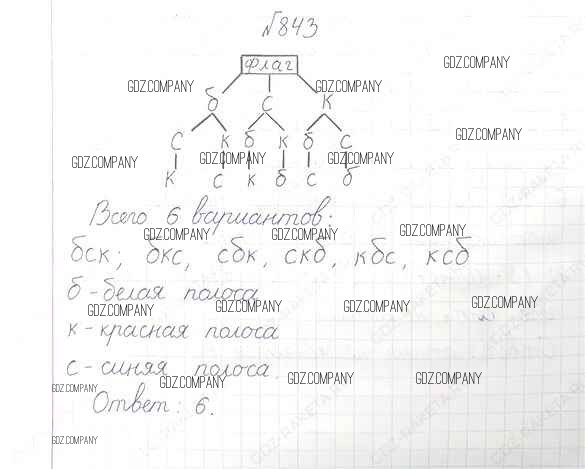 №843
флаг
б с к
с к б к б с
к с к б с б
Всего 6 вариантов:
бск; бкс, сбк, скб, кбс, ксб
б - белая полоса
к - красная полоса
с - синяя полоса.
Ответ: 6.
GDZ.COMPANY GDZ.COMPANY GDZ.COMPANY
GDZ.COMPANY GDZ.COMPANY GDZ.COMPANY GDZ.COMPANY
GDZ.COMPANY GDZ.COMPANY GDZ.COMPANY
GDZ.COMPANY GDZ.COMPANY GDZ.COMPANY GDZ.COMPANY
GDZ.COMPANY GDZ.COMPANY GDZ.COMPANY GDZ.COMPANY
GDZ.COMPANY